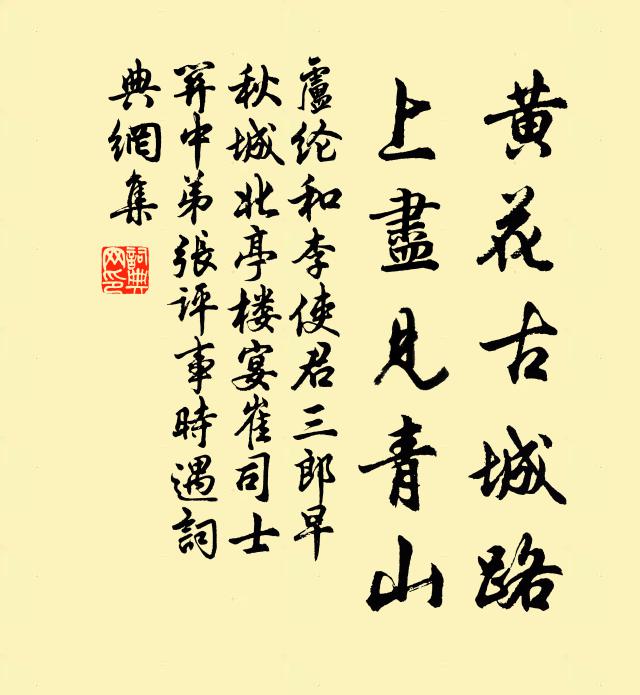 黄花古城路
上盡見青山
盧纶和李使君三郎早
秋城北亭楼宴崔司士
筓中弟張评事時遇詞
典網集
詞典
网印